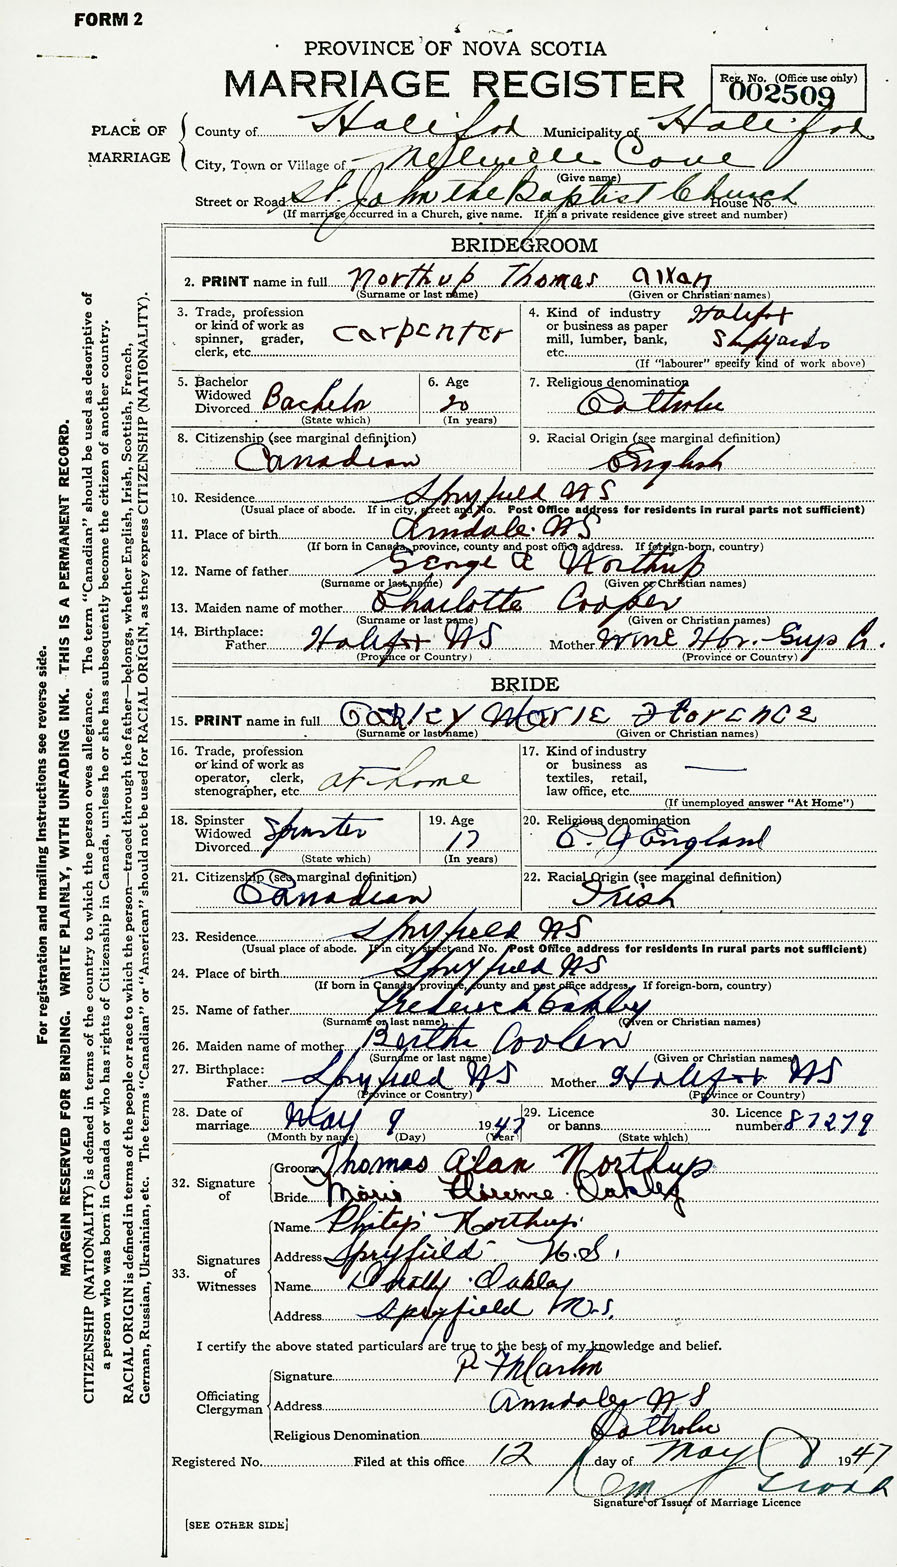 FORM 2
PROVINCE OF NOVA SCOTIA
MARRIAGE REGISTER
Reg. No. (Office use only)
002509
PLACE OF MARRIAGE
County of Halifax Municipality of Halifax
City, Town or Village of Melville Cove
(Give name)
Street or Road St. John the Baptist Church House No.
(If marriage occurred in a Church, give name. If in a private residence give street and number)
BRIDEGROOM
2. PRINT name in full Northup Thomas Allan
(Surname or last name) (Given or Christian names)
3. Trade, profession or kind of work as spinner, grader, clerk, etc. Carpenter
4. Kind of industry or business as paper mill, lumber, bank, etc. Halifax Shipyards
(If "labourer" specify kind of work above)
5. Bachelor Widowed Divorced Bachelor
(State which)
6. Age 20
(In years)
7. Religious denomination Catholic
8. Citizenship (see marginal definition) Canadian
9. Racial Origin (see marginal definition) English
10. Residence Spryfield NS
(Usual place of abode. If in city, street and No. Post Office address for residents in rural parts not sufficient)
11. Place of birth Armdale NS
(If born in Canada, province, county and post office address. If foreign-born, country)
12. Name of father George Northup
(Surname or last name) (Given or Christian names)
13. Maiden name of mother Charlotte Cooper
(Surname or last name) (Given or Christian names)
14. Birthplace: Father Halifax NS Mother Wine Hbr. Guys Co.
(Province or Country) (Province or Country)
BRIDE
15. PRINT name in full OAKLEY MARIE FLORENCE
(Surname or last name) (Given or Christian names)
16. Trade, profession or kind of work as operator, clerk, stenographer, etc at home
17. Kind of industry or business as textiles, retail, law office, etc. —
(If unemployed answer "At Home")
18. Spinster Widowed Divorced Spinster
(State which)
19. Age 17
(In years)
20. Religious denomination C. of England
21. Citizenship (see marginal definition) Canadian
22. Racial Origin (see marginal definition) Irish
23. Residence Spryfield NS
(Usual place of abode. If in city street and No. Post Office address for residents in rural parts not sufficient)
24. Place of birth Spryfield NS
(If born in Canada, province, county and post office address. If foreign-born, country)
25. Name of father Frederick Oakley
(Surname or last name) (Given or Christian names)
26. Maiden name of mother Bertha Coolen
(Surname or last name) (Given or Christian names)
27. Birthplace: Father Spryfield NS Mother Halifax NS
(Province or Country) (Province or Country)
28. Date of marriage May 9 1947
(Month by name) (Day) (Year)
29. Licence or banns
(State which)
30. Licence number 87279
32. Signature of
Groom Thomas Alan Northup
Bride Marie Florence Oakley
33. Signatures of Witnesses
Name Philip Northup
Address Spryfield N.S.
Name Dorothy Oakley
Address Spryfield N.S.
I certify the above stated particulars are true to the best of my knowledge and belief.
Officiating Clergyman
Signature P. F. Martin
Address Armdale NS
Religious Denomination Catholic
Registered No. Filed at this office 12 day of May 1947
Signature of Issuer of Marriage Licence
[SEE OTHER SIDE]
For registration and mailing instructions see reverse side.
MARGIN RESERVED FOR BINDING. WRITE PLAINLY, WITH UNFADING INK. THIS IS A PERMANENT RECORD.
CITIZENSHIP (NATIONALITY) is defined in terms of the country to which the person owes allegiance. The term "Canadian" should be used as descriptive of
a person who was born in Canada or who has rights of Citizenship in Canada, unless he or she has subsequently become the citizen of another country.
RACIAL ORIGIN is defined in terms of the people or race to which the person—traced through the father—belongs, whether English, Irish, Scottish, French,
German, Russian, Ukrainian, etc. The terms "Canadian" or "American" should not be used for RACIAL ORIGIN, as they express CITIZENSHIP (NATIONALITY).